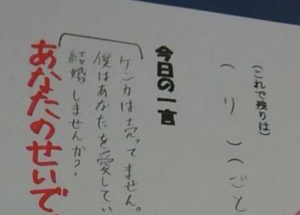 (これで残りは)
( り )(ごと
今日の一言
ケンカは売ってません。
僕はあなたを愛してい
結婚しませんか?
あなたのせいで